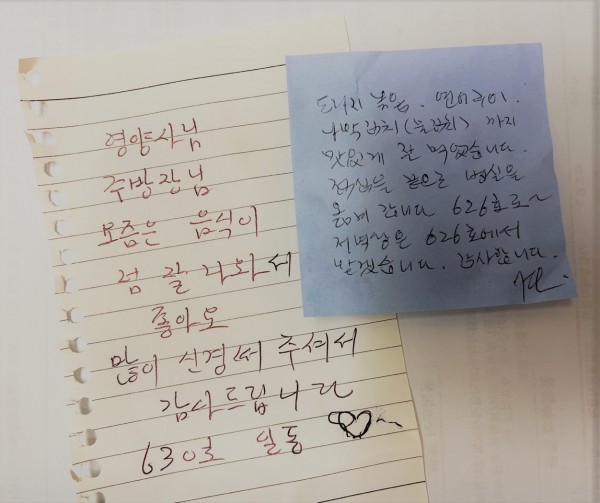 영양사님
주방장님
요즘은 음식이
넘 잘 나와서
좋아요
많이 신경써 주셔서
감사드립니다
630호 일동
도라지 볶음. 연어구이.
나박김치(물김치) 까지
맛있게 잘 먹었습니다.
점심을 끝으로 병실을
옮겨 갑니다 626호로~
저녁상은 626호에서
받겠습니다. 감사합니다.